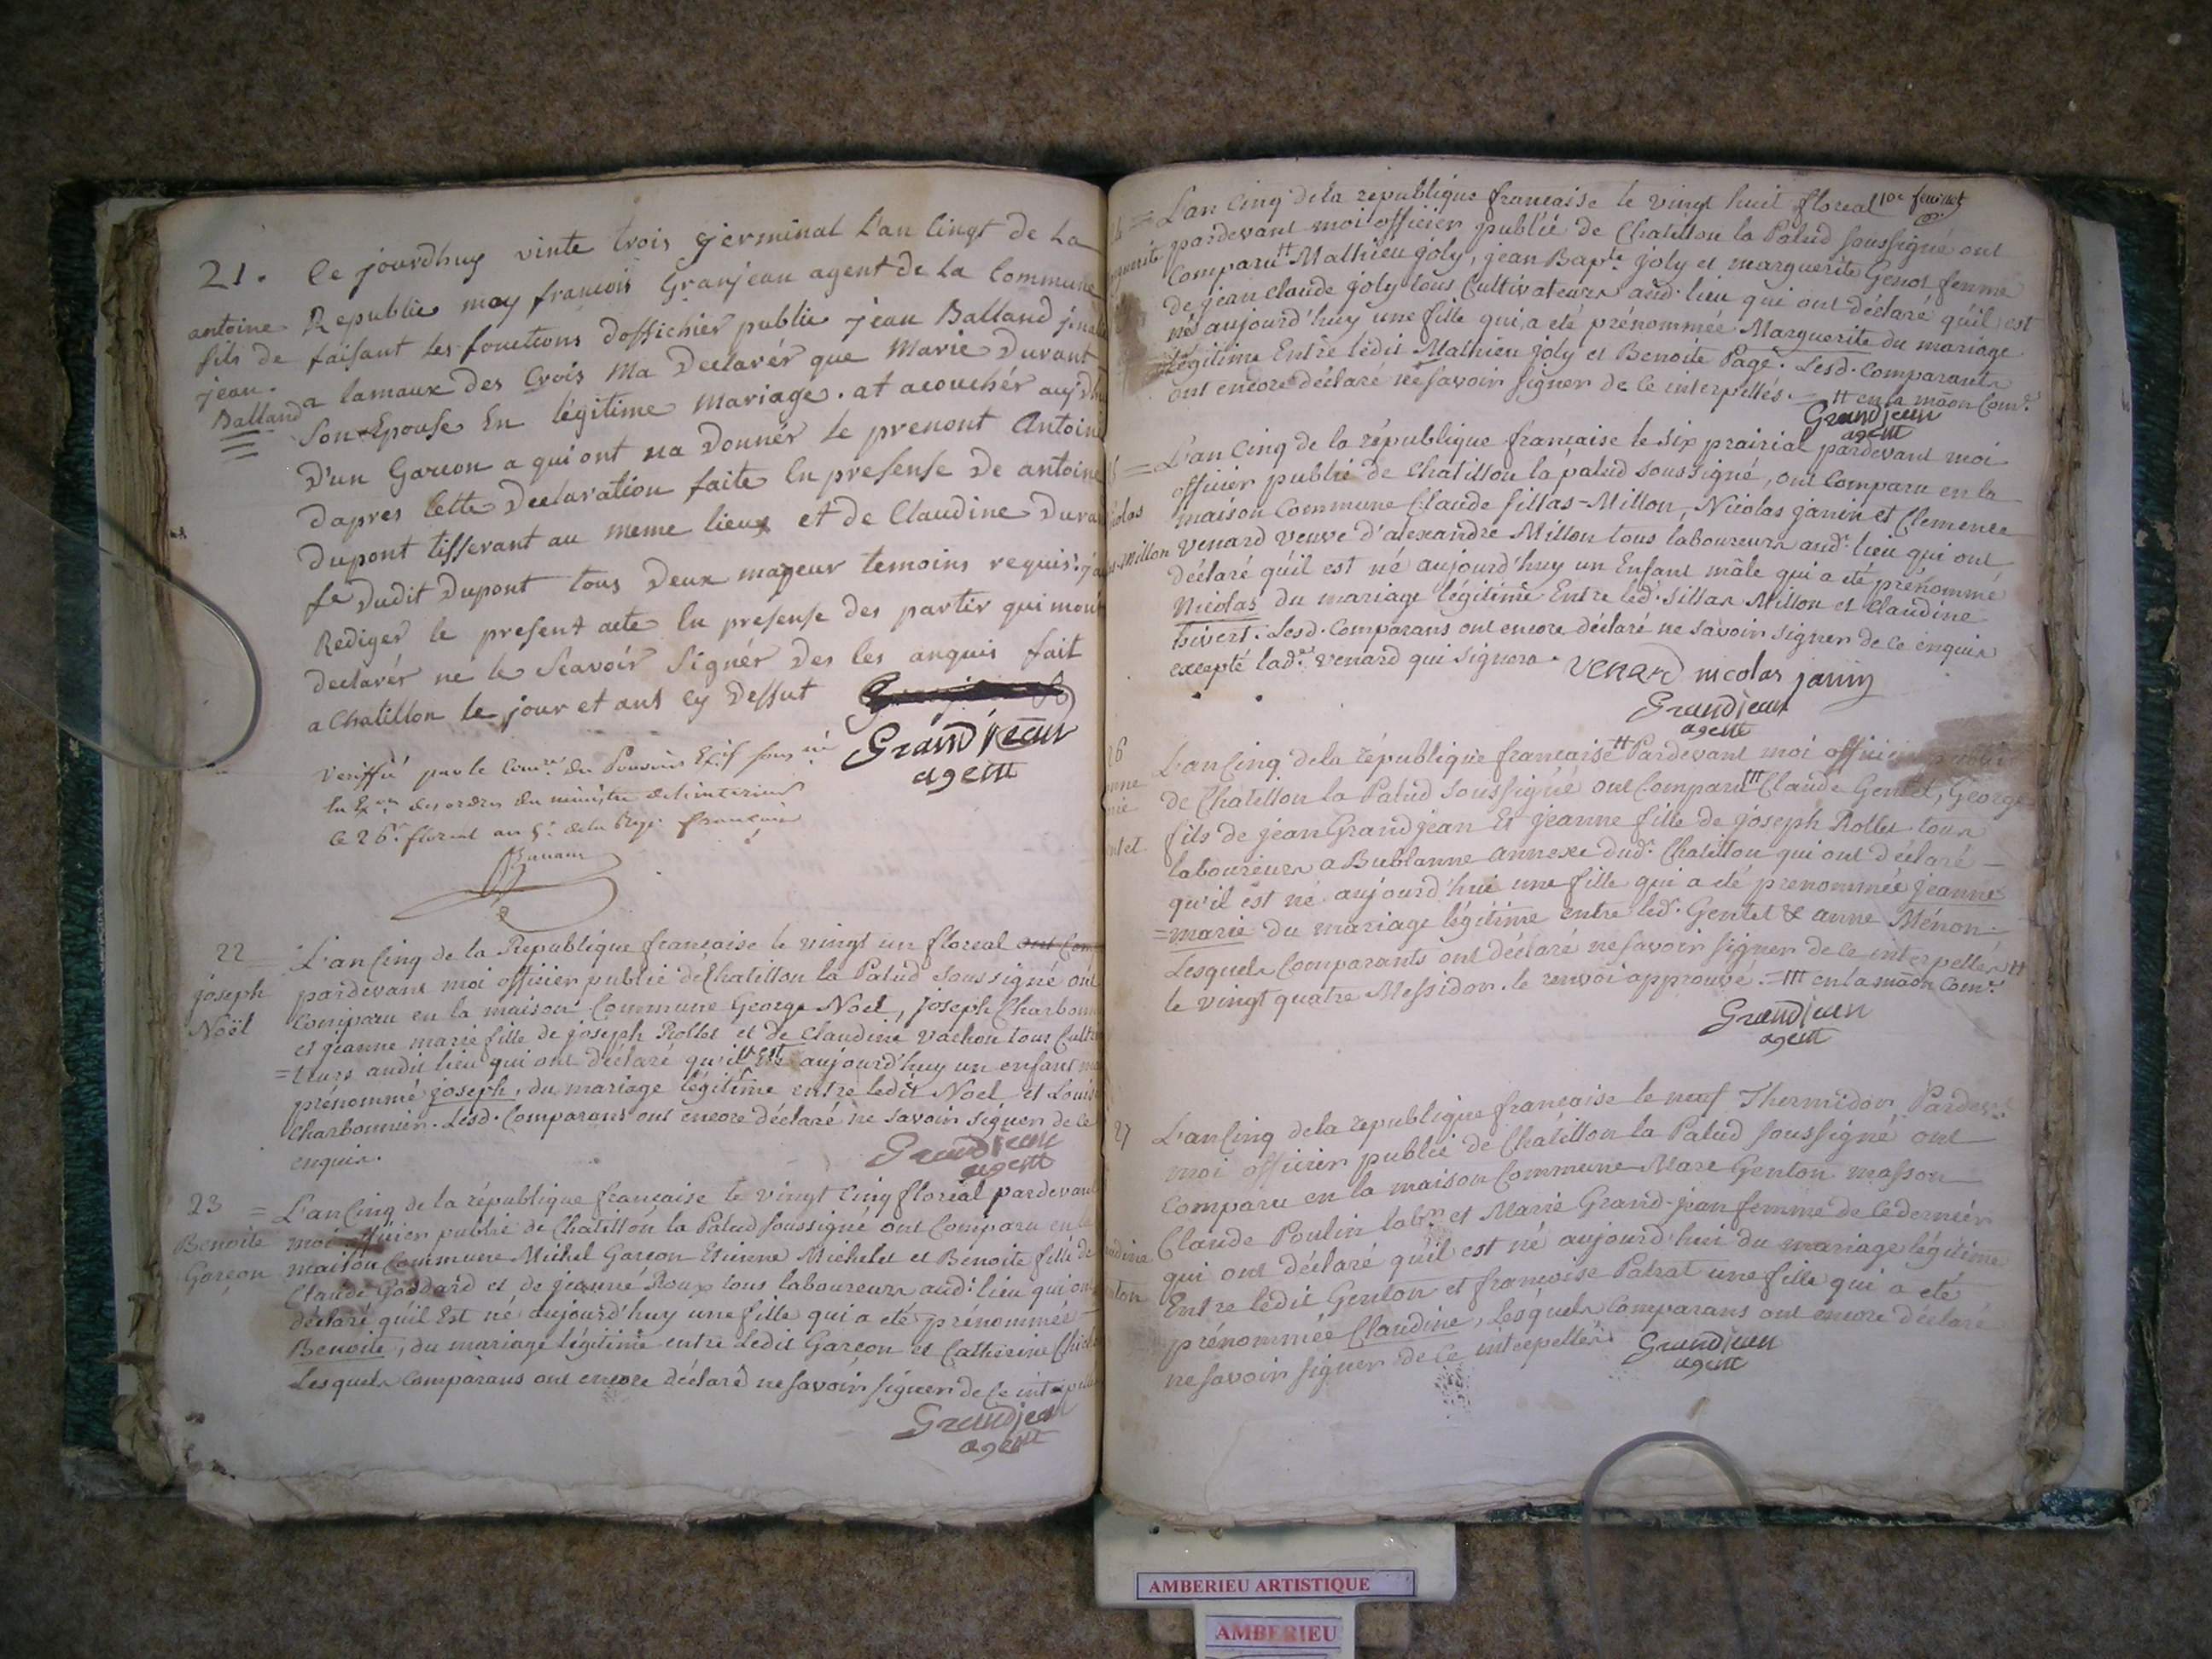 21. Ce jourdhuy vinte trois germinal L'an Cinqt de La
antoine Republie moy francois Granjean agent de La Commune
fils de faisant les fonctions doffichier public jean Balland
jean.
Balland a lamaux des Crois Ma Declarér que Marie Durant
Son Epouse En légitime mariage. at acouchér
D'un Garcon a qui ont na Donnér le prenont Antoine
dapres Cette Declaration faite En presense De antoine
Dupont tisserant au meme lieux et de Claudine
fe dudit Dupont tous Deux majeur temoins requis
Rediger le present acte En presense des partir qui
declarér ne le Scavoir Signér des les anquis fait
a Chatillon le jour et ans Cy Dessut
GrandJean
agent
Veriffié par le Comre du Pouvoir Exif
des ordres du ministre de l'interieur
le 26 floreal an 5e de la Rep. francaise
22 L'an Cinq de la Republique francaise le vingt un floreal
joseph pardevant moi officier public de Chatillon la Palud soussigné ont
Noël Comparu en la maison Commune George Noel, joseph
et jeanne marie fille de joseph Rollet et de Claudine vachon tous
=teurs audit lieu qui ont déclaré qu'il est aujourd'huy un enfant
prénommé joseph, du mariage légitime entre ledit Noel et
Charbonnier. Lesd. Comparans ont encore déclaré ne savoir signer de ce
enquis.
Grandjean
agent
23 = L'an Cinq de la république francaise le vingt cinq floréal pardevant
Benoite moi officier public de Chatillon la Palud soussigné ont Comparu en la
Garcon maison Commune Michel Garcon Etienne Michelet et Benoite fille de
Claude Goddard et de jeanne Roux tous laboureurs aud. lieu qui
déclaré qu'il Est né aujourd'huy une fille qui a eté prénommée
Benoite, du mariage légitime entre Ledit Garcon et Catherine
Lesquels Comparans ont encore déclaré ne savoir signer de ce
Grandjean
agent
10e feuillet
= L'an Cinq de la république francaise le vingt huit floreal
pardevant moi officier public de Chatillon la Palud soussigné ont
Comparu Mathieu joly, jean Bapte joly et marguerite Genot femme
de jean Claude joly tous Cultivateurs aud. lieu qui ont déclaré qu'il est
né aujourd'huy une fille qui a eté prénommée Marguerite du mariage
légitime Entre ledit Mathieu joly et Benoite Page. Lesd. Comparants
ont encore déclaré ne savoir signer de ce interpellés. = # en la mãon Come
Grandjean
agent
= L'an Cinq de la république francaise le six prairial pardevant moi
officier public de Chatillon la palud soussigné, ont Comparu en la
maison Commune Claude sillas-Millon, Nicolas janin et Clemence
Millon venard veuve d'alexandre Millon tous laboureurs aud. lieu qui ont
déclaré qu'il est né aujourd'huy un Enfant mâle qui a eté prénommé
Nicolas du mariage légitime Entre led. sillas Millon et Claudine
Lesd. Comparans ont encore déclaré ne savoir signer de ce enquis
excepté lade venard qui signera. venard nicolas janin
Grandjean
agent
26 L'an Cinq de la république francaise # Pardevant moi officier public
de Chatillon la Palud soussigné ont Comparu Claude Gentet, George
fils de jean Grandjean Et jeanne fille de joseph Rollet tous
laboureurs a Bublanne annexe dud. Chatillon qui ont déclaré
qu'il est né aujourd'hui une fille qui a eté prenommée jeanne
=marie du mariage légitime entre led. Gentet & anne Ménon.
Lesquels Comparants ont déclaré ne savoir signer de ce interpellés #
le vingt quatre Messidor. le renvoi approuvé. = en la mãon Come
Grandjean
agent
27 L'an Cinq de la republique francaise le neuf Thermidor,
moi officier public de Chatillon la Palud soussigné ont
Comparu en la maison Commune Marc Genton masson
Claude Poulin et Marie Grand-jean femme de ce dernier
qui ont déclaré qu'il est né aujourd'hui du mariage légitime
Entre ledit Genton et francoise Patrat une fille qui a eté
prénommée Claudine, Lesquels Comparans ont encore déclaré
ne savoir signer de ce interpellés. Grandjean
agent
AMBERIEU ARTISTIQUE
AMBERIEU